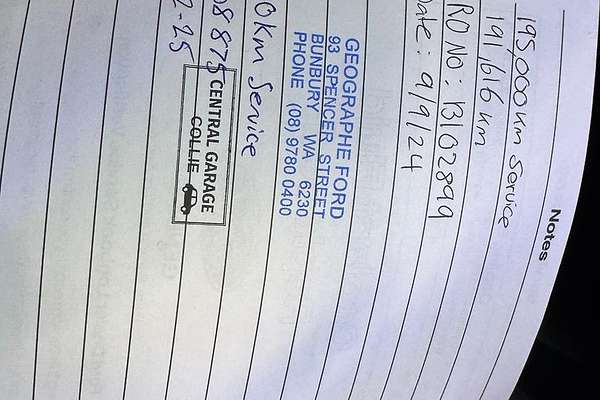 Notes
195,000 km Service
191,616 km
RO No: B102899
Date: 9/9/24
GEOGRAPHE FORD
93 SPENCER STREET
BUNBURY WA 6230
PHONE (08) 9780 0400
0 km Service
8 875
CENTRAL GARAGE
COLLIE
2-25